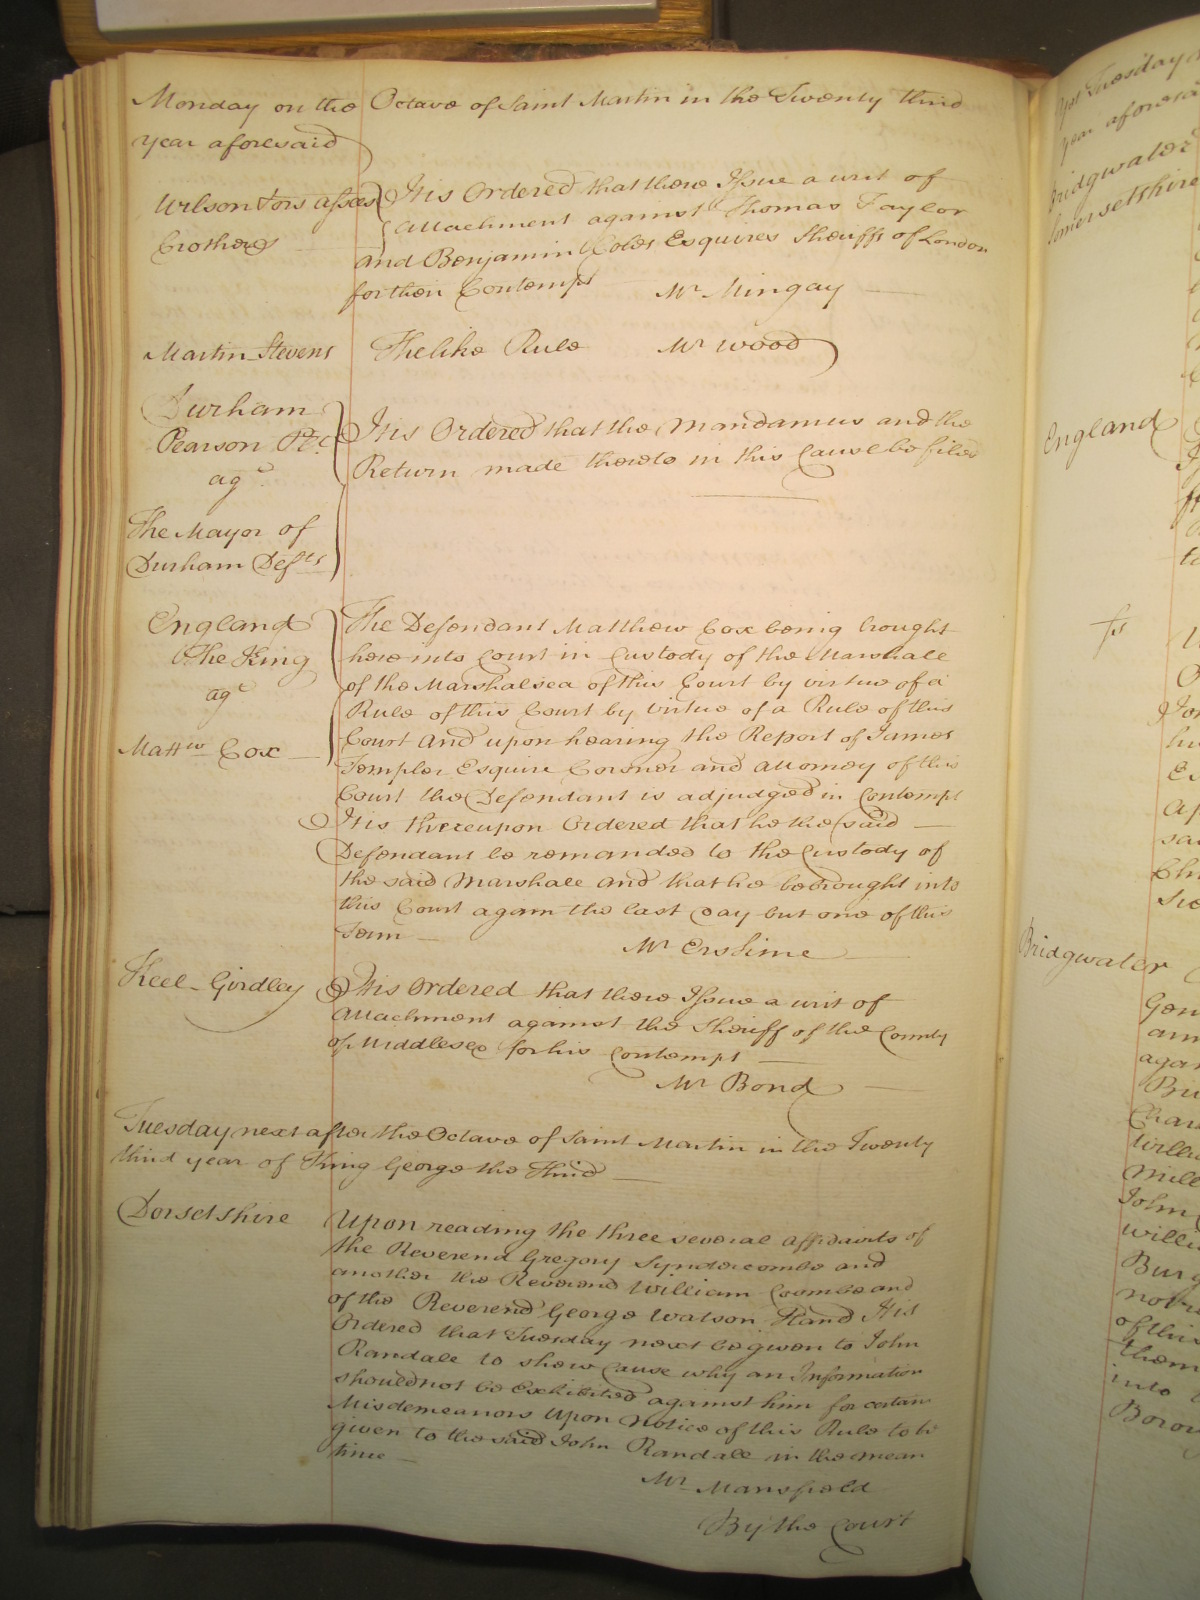 Monday on the Octave of Saint Martin in the Twenty third
year aforesaid
Wilson & ors assees
Crothers
It is Ordered that there Issue a writ of
Attachment against Thomas Taylor
and Benjamin Coles Esquires Sheriffs of London
for their Contempt
Mr Mingay
Martin Stevens
The like Rule
Mr Wood
Durham
Pearson
agt
The Mayor of
Durham Defts
It is Ordered that the Mandamus and the
Return made thereto in this Cause be filed
England
The King
agt
Mattw Cox
The Defendant Matthew Cox being brought
here into Court in Custody of the Marshall
of the Marshalsea of this Court by virtue of a
Rule of this Court by virtue of a Rule of this
Court and upon hearing the Report of James
Templer Esquire Coroner and Attorney of this
Court the Defendant is adjudged in Contempt
It is thereupon Ordered that he the said
Defendant be remanded to the Custody of
the said Marshall and that he be brought into
this Court again the last day but one of this
Term
Mr Erskine
Keel - Girdley
It is Ordered that there Issue a writ of
Attachment against the Sheriff of the County
of Middlesex for his Contempt
Mr Bond
Tuesday next after the Octave of Saint Martin in the Twenty
third year of King George the Third
Dorsetshire
Upon reading the three several affidavits of
the Reverend Gregory Syndercombe and
another the Reverend William Coombe and
of the Reverend George Watson It is
Ordered that Tuesday next be given to John
Randall to shew Cause why an Information
should not be Exhibited against him for certain
Misdemeanors Upon Notice of this Rule to be
given to the said John Randall in the mean
time
Mr Mansfield
By the Court
Yet Tuesday
year aforesaid
Bridgwater
Somersetshire
England
Bridgwater